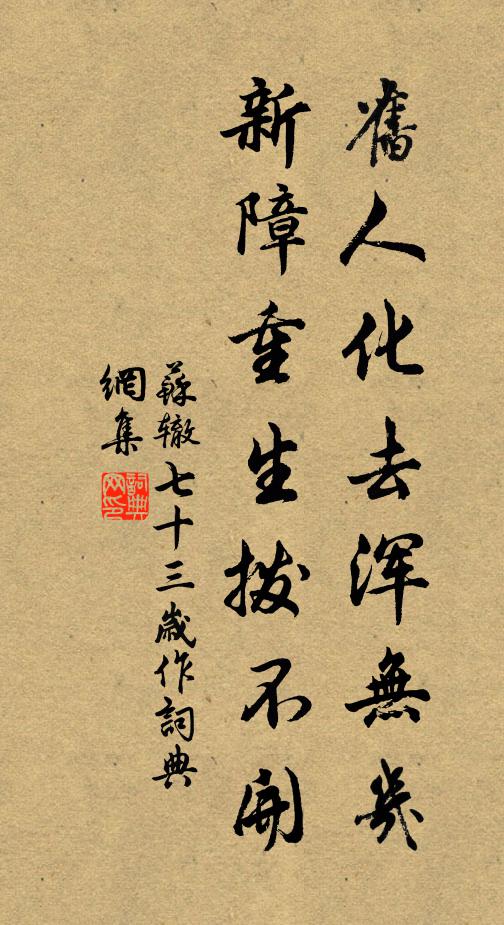 舊人化去渾無幾
新障重生撥不開
蘇轍七十三歲作詞典
網集
詞典网印